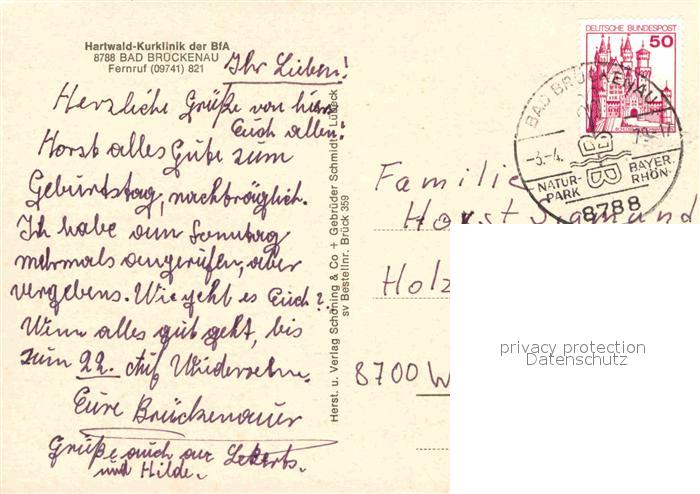 Hartwald-Kurklinik der BfA
8788 BAD BRÜCKENAU
Fernruf (09741) 821
Ihr Lieben!
Herzliche Grüße von hier
Euch allen!
Horst alles Gute zum
Geburtstag, nachträglich.
Ich habe am Sonntag
mehrmals angerufen, aber
vergebens. Wie geht es Euch?
Wenn alles gut geht, bis
zum 22. Auf Wiedersehn.
Eure Brückenauer
Grüße auch an
und Hilde.
Herst. u. Verlag Schöning & Co + Gebrüder Schmidt, Lübeck
sv Bestellnr. Brück 359
DEUTSCHE BUNDESPOST
50
BAD BRÜCKENAU
-3.-4.
NATUR-
PARK
BAYER.
RHÖN
8788
Familie
Horst
Holz
8700 W
privacy protection
Datenschutz